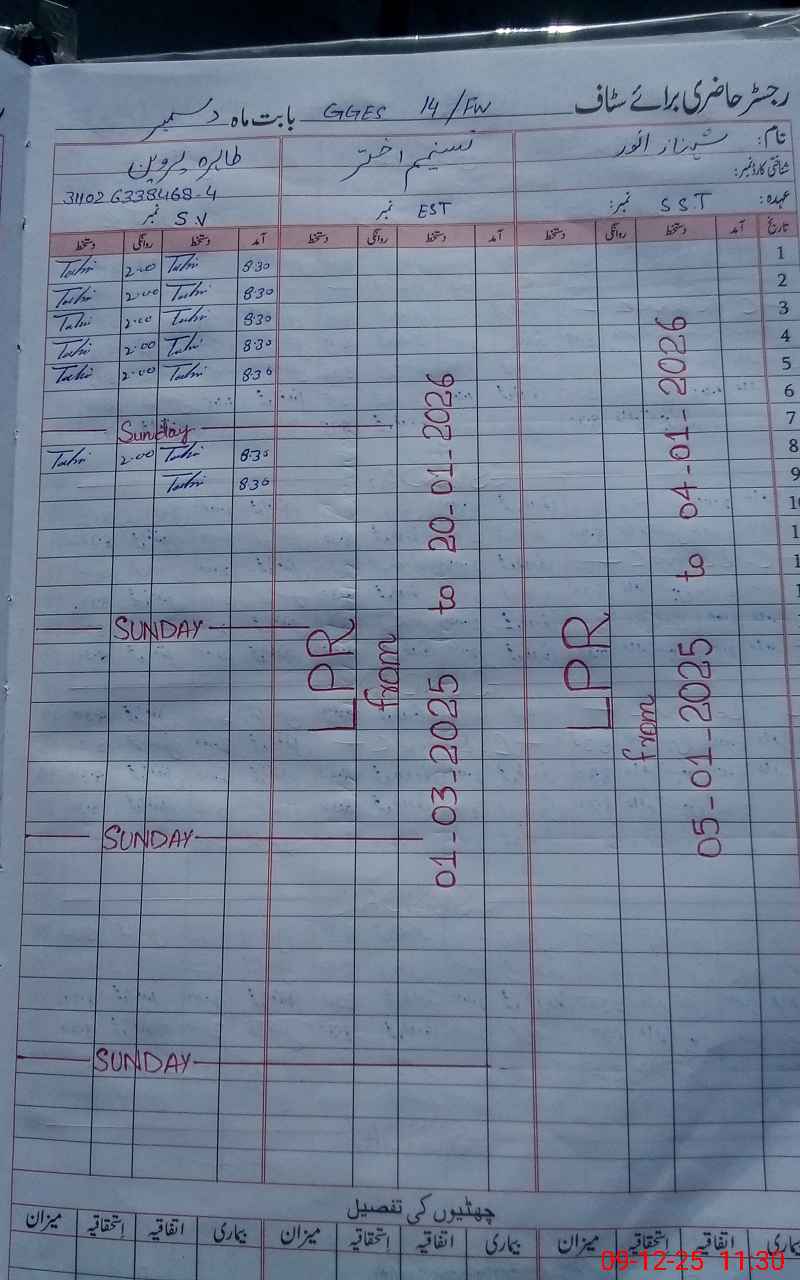 رجسٹر حاضری برائے سٹاف GGES 14/FW بابت ماہ دسمبر
نام: شہناز انور تسنیم اختر طاہرہ پروین
شناختی کارڈ نمبر: 31102 6338468-4
عہدہ: SST نمبر: EST نمبر S.V نمبر
تاریخ آمد دستخط روانگی دستخط آمد دستخط روانگی دستخط آمد دستخط روانگی دستخط
1 8:30 2:00
2 8:30 2:00
3 8:30 2:00
4 8:30 2:00
5 8:30 2:00
6
7 Sunday
8 8:30 2:00
9 8:30
SUNDAY
SUNDAY
SUNDAY
LPR
from
05-01-2025 to 04-01-2026
LPR
from
01-03-2025 to 20-01-2026
چھٹیوں کی تفصیل
بیماری اتفاقیہ استحقاقیہ میزان بیماری اتفاقیہ استحقاقیہ میزان بیماری اتفاقیہ استحقاقیہ میزان
09-12-25 11:30